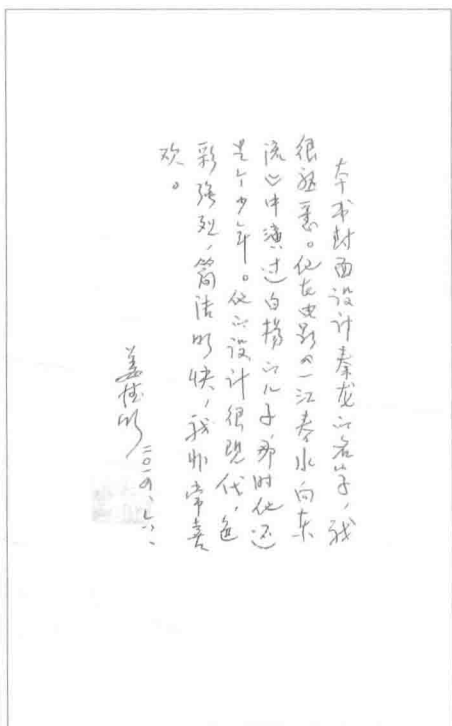 本书封面设计秦龙的名字，我
很熟悉。他在电影《一江春水向东
流》中演过白杨的儿子，那时他还
是个少年。他的设计很现代，色
彩强烈，简洁明快，我非常喜
欢。
姜德明 二〇一四、六、